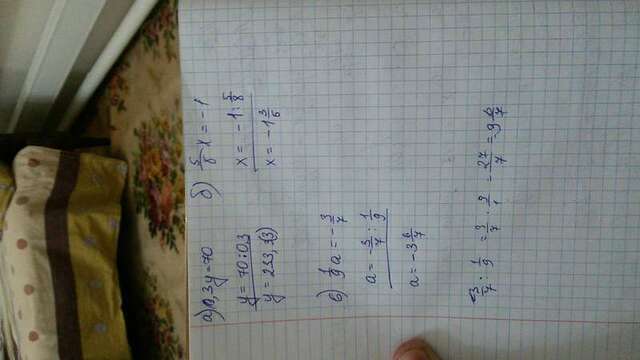 а) 0,3y=70
y = 70:0,3
y = 233,3(3)
б) 5/8 x = -1
x = -1: 5/8
x = -1 3/6
в) 1/9 a = - 3/7
a = - 3/7 : 1/9
a = -3 6/7
- 3/7 : 1/9 = 3/7 · 9/1 = 27/7 = -3 6/7